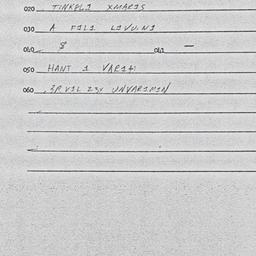 020 TINKEL1 XMARIS
030 A FILI LIVUNI
040 8 041 —
050 HANT 1 VARI4:
060 SPVIL 23X UNVARIMIN